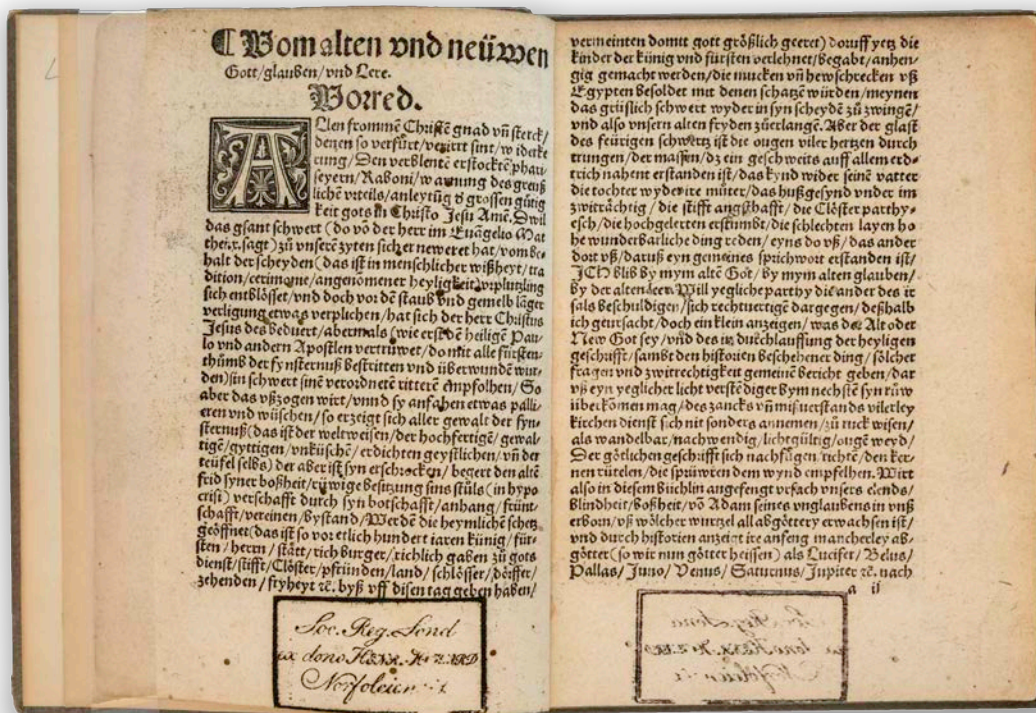 ¶ Vom alten vnd neüwen
Gott/glauben/vnd Lere.
Vorred.
ALlen frommē Christē gnad vñ sterck/
denen so verfürt/verirrt sint/widerke
rung/Den verblentē erstocktē phari
seyern/Raboni/warnung des greuß
lichē vrteils/anleytūg d grossen gütig
keit gots in Christo Jesu Amē. Dwil
das gsant schwert (do vō der herr im Euāgelio Mat
thei.x.sagt) zů vnserē zyten sich ernewert hat/vom be-
halt der scheyden (das ist in menschlicher wißheyt/tra
dition/cerimonie/angenomener heyligkeit) vrplutzling
sich entblösset/vnd doch vor dē staub vnd gemelb läger
verligung etwas verplichen/hat sich der herr Christus
Jesus des beduert/abermals (wie erst dē heiligē Pau-
lo vnd andern Apostlen vertrüwet/do mit alle fürsten-
thůmb der fynsternuß bestritten vnd überwunden wur-
den) sin schwert sinē verordnetē ritterē empfolhen/So
aber das vßzogen wirt/vnnd sy anfahen etwas palli-
eren vnd wüschen/so erzeigt sich aller gewalt der fyn-
sternuß (das ist der weltweisen/der hochfertigē/gewal-
tigē/gyttigen/vnküschē/erdichten geystlichen/vñ der
teüfel selbs) der aber ist syn erschrocken/begert den altē
frid syner boßheit/růwige besitzung sins stůls (in hypo
crisi) verschafft durch syn botschafft/anhang/frünt-
schafft/vereinen/bystand/Werdē die heymlichē schetz
geöffnet (das ist so vor etlich hundert iaren künig/für-
sten/herrn/stätt/rich burger/richlich gaben zů gots
dienst/stifft/Clöster/pfründen/land/schlösser/dörffer/
zehenden/fryheyt ꝛc. byß vff disen tag geben haben/
Soc. Reg. Lond
ex dono HENR. HOWARD
Norfolciensis
vermeinten domit gott größlich geeret) doruff yetz die
kinder der künig vnd fürsten verlehnet/begabt/anhen-
gig gemacht werden/die mucken vñ hewschrecken vß
Egypten besoldet mit denen schatzē würden/meynen
das grüslich schwert wyder in syn scheydē zů zwingē/
vnd also vnsern alten fryden zůerlangē. Aber der glast
des feürigen schwertz ist die ougen viler hertzen durch
trungen/der massen/dz ein geschweits auff allem erd-
trich nahent erstanden ist/das kynd wider seinē vatter
die tochter wyder ire můter/das hußgesynd vnder im
zwiträchtig/die stifft angsthafft/die Clöster parthy-
esch/die hochgelerten erstumbt/die schlechten layen ho
he wunderbarliche ding reden/eyns do vß/das ander
dort vß/daruß eyn gemeines sprichwort erstanden ist/
JCH blib by mym altē Got/by mym alten glauben/
by der alten leer. Will yegliche parthy die ander des ir
sals beschuldigen/sich rechtuertigē dargegen/deßhalb
ich geursacht/doch ein klein anzeigen/was der Alt oder
New Got sey/vnd des in durchlauffung der heyligen
geschrifft/sambt den historien beschehener ding/sölcher
fragen vnd zwitrechtigkeit gemeinē bericht geben/dar
vß eyn yeglicher licht verstēdiger bym nechstē syn růw
überkōmen mag/des zancks vñ mißuerstands vilerley
kirchen dienst sich nit sonders annemen/zů ruck wisen/
als wandelbar/nachwendig/lichtgültig/ougē weyd/
Der götlichen geschrifft sich nachfügen/richtē/den ker-
nen rütelen/die sprüwren dem wynd empfelhen. Wirt
also in diesem büchlin angefengt vrsach vnsers elends/
blindheit/boßheit/vō Adam seines vnglaubens in vnß
erborn/vß wölcher wurtzel all abgöttery erwachsen ist/
vnd durch historien anzeigt ire anfeng mancherley ab-
götter (so wir nun götter heissen) als Lucifer/Belus/
Pallas/Juno/Venus/Saturnus/Jupiter ꝛc. nach
a ij